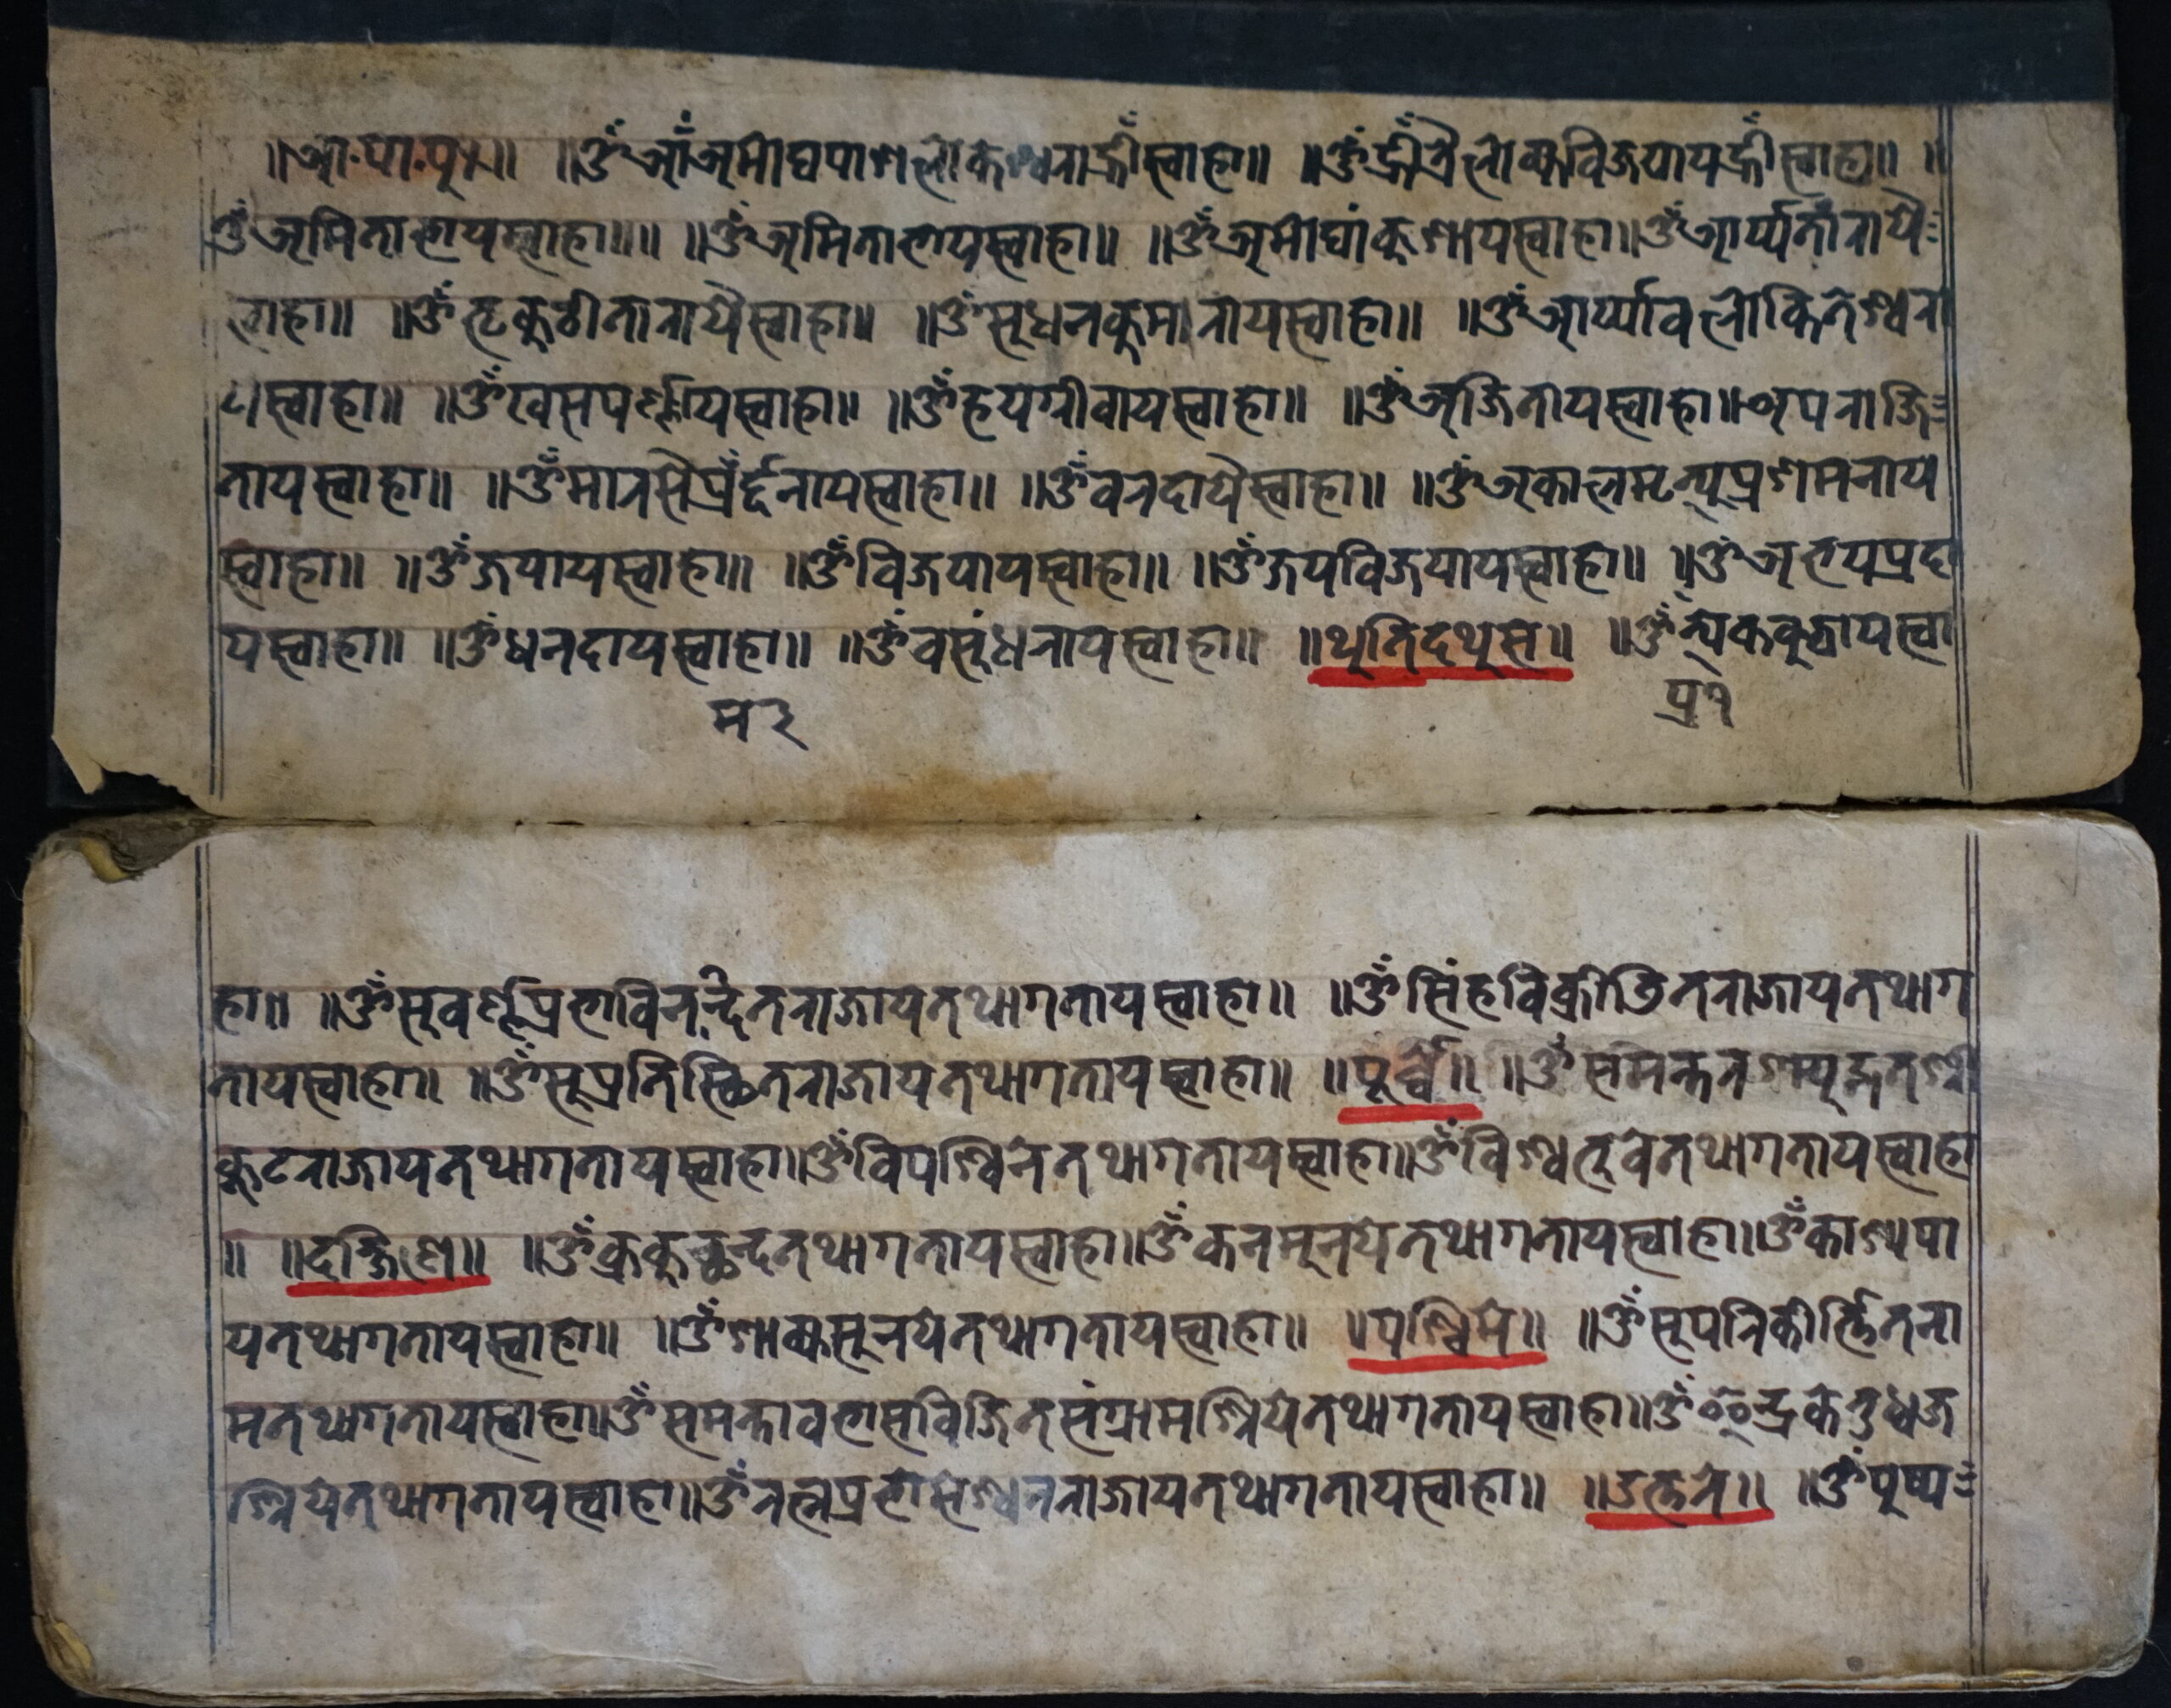 ॥आ.पा.पू॥ ॥ॐ आँ अमोघपाशलोकेश्वराह्रीँ स्वाहा॥ ॥ॐ ह्रीँ त्रैलोक्यविजयायह्रीँ स्वाहा॥ ॥
ॐ अमिताभायस्वाहा॥॥ ॥ॐ अमिताभायस्वाहा॥ ॥ॐ अमोघांकुशायस्वाहा॥ॐ आर्य्यतारायै
स्वाहा॥ ॥ॐ भृकुटीतारायैस्वाहा॥ ॥ॐ सुधनकुमारायस्वाहा॥ ॥ॐ आर्य्यावलोकितेश्वरा
यस्वाहा॥ ॥ॐ खसपर्ण्णायस्वाहा॥ ॥ॐ हयग्रीवायस्वाहा॥ ॥ॐ अजितायस्वाहा॥अपराजि
तायस्वाहा॥ ॥ॐ मारसैप्रर्द्दनायस्वाहा॥ ॥ॐ वरदायैस्वाहा॥ ॥ॐ अकालमृत्युप्रशमनाय
स्वाहा॥ ॥ॐ जयायस्वाहा॥ ॥ॐ विजयायस्वाहा॥ ॥ॐ जयविजयायस्वाहा॥ ॥ॐ अभयप्रदा
यस्वाहा॥ ॥ॐ धनदायस्वाहा॥ ॥ॐ वसुंधरायस्वाहा॥ ॥थुतिदथुस॥ ॥ॐ त्येकबुद्धायस्वा
म२ प्र१
हा॥ ॥ॐ सुवर्ण्णप्रभाविनन्दितराजायतथागतायस्वाहा॥ ॥ॐ सिंहविक्रीडितराजायतथाग
तायस्वाहा॥ ॥ॐ सुप्रतिस्थितराजायतथागतायस्वाहा॥ ॥पूर्ब्बे॥ ॥ॐ समन्तरश्म्युद्गतश्री
कूटराजायतथागतायस्वाहा॥ॐ विपश्विनेतथागतायस्वाहा॥ॐ विश्वभुवेतथागतायस्वाहा
॥ ॥दक्षिणे॥ ॥ॐ क्रकुच्छन्दतथागतायस्वाहा॥ॐ कनमुनयेतथागतायस्वाहा॥ॐ काश्यपा
यतथागतायस्वाहा॥ ॥ॐ शाक्यमुनयेतथागतायस्वाहा॥ ॥पश्चिमे॥ ॥ॐ सुपरिकीर्त्तितना
मतथागतायस्वाहा॥ॐ समन्तावभासविजितसंग्रामश्रियेतथागतायस्वाहा॥ॐ इन्द्रकेतुध्वज
श्रियेतथागतायस्वाहा॥ॐ रत्नप्रभासेश्वरराजायतथागतायस्वाहा॥ ॥उत्तरे॥ ॥ॐ पुष्प